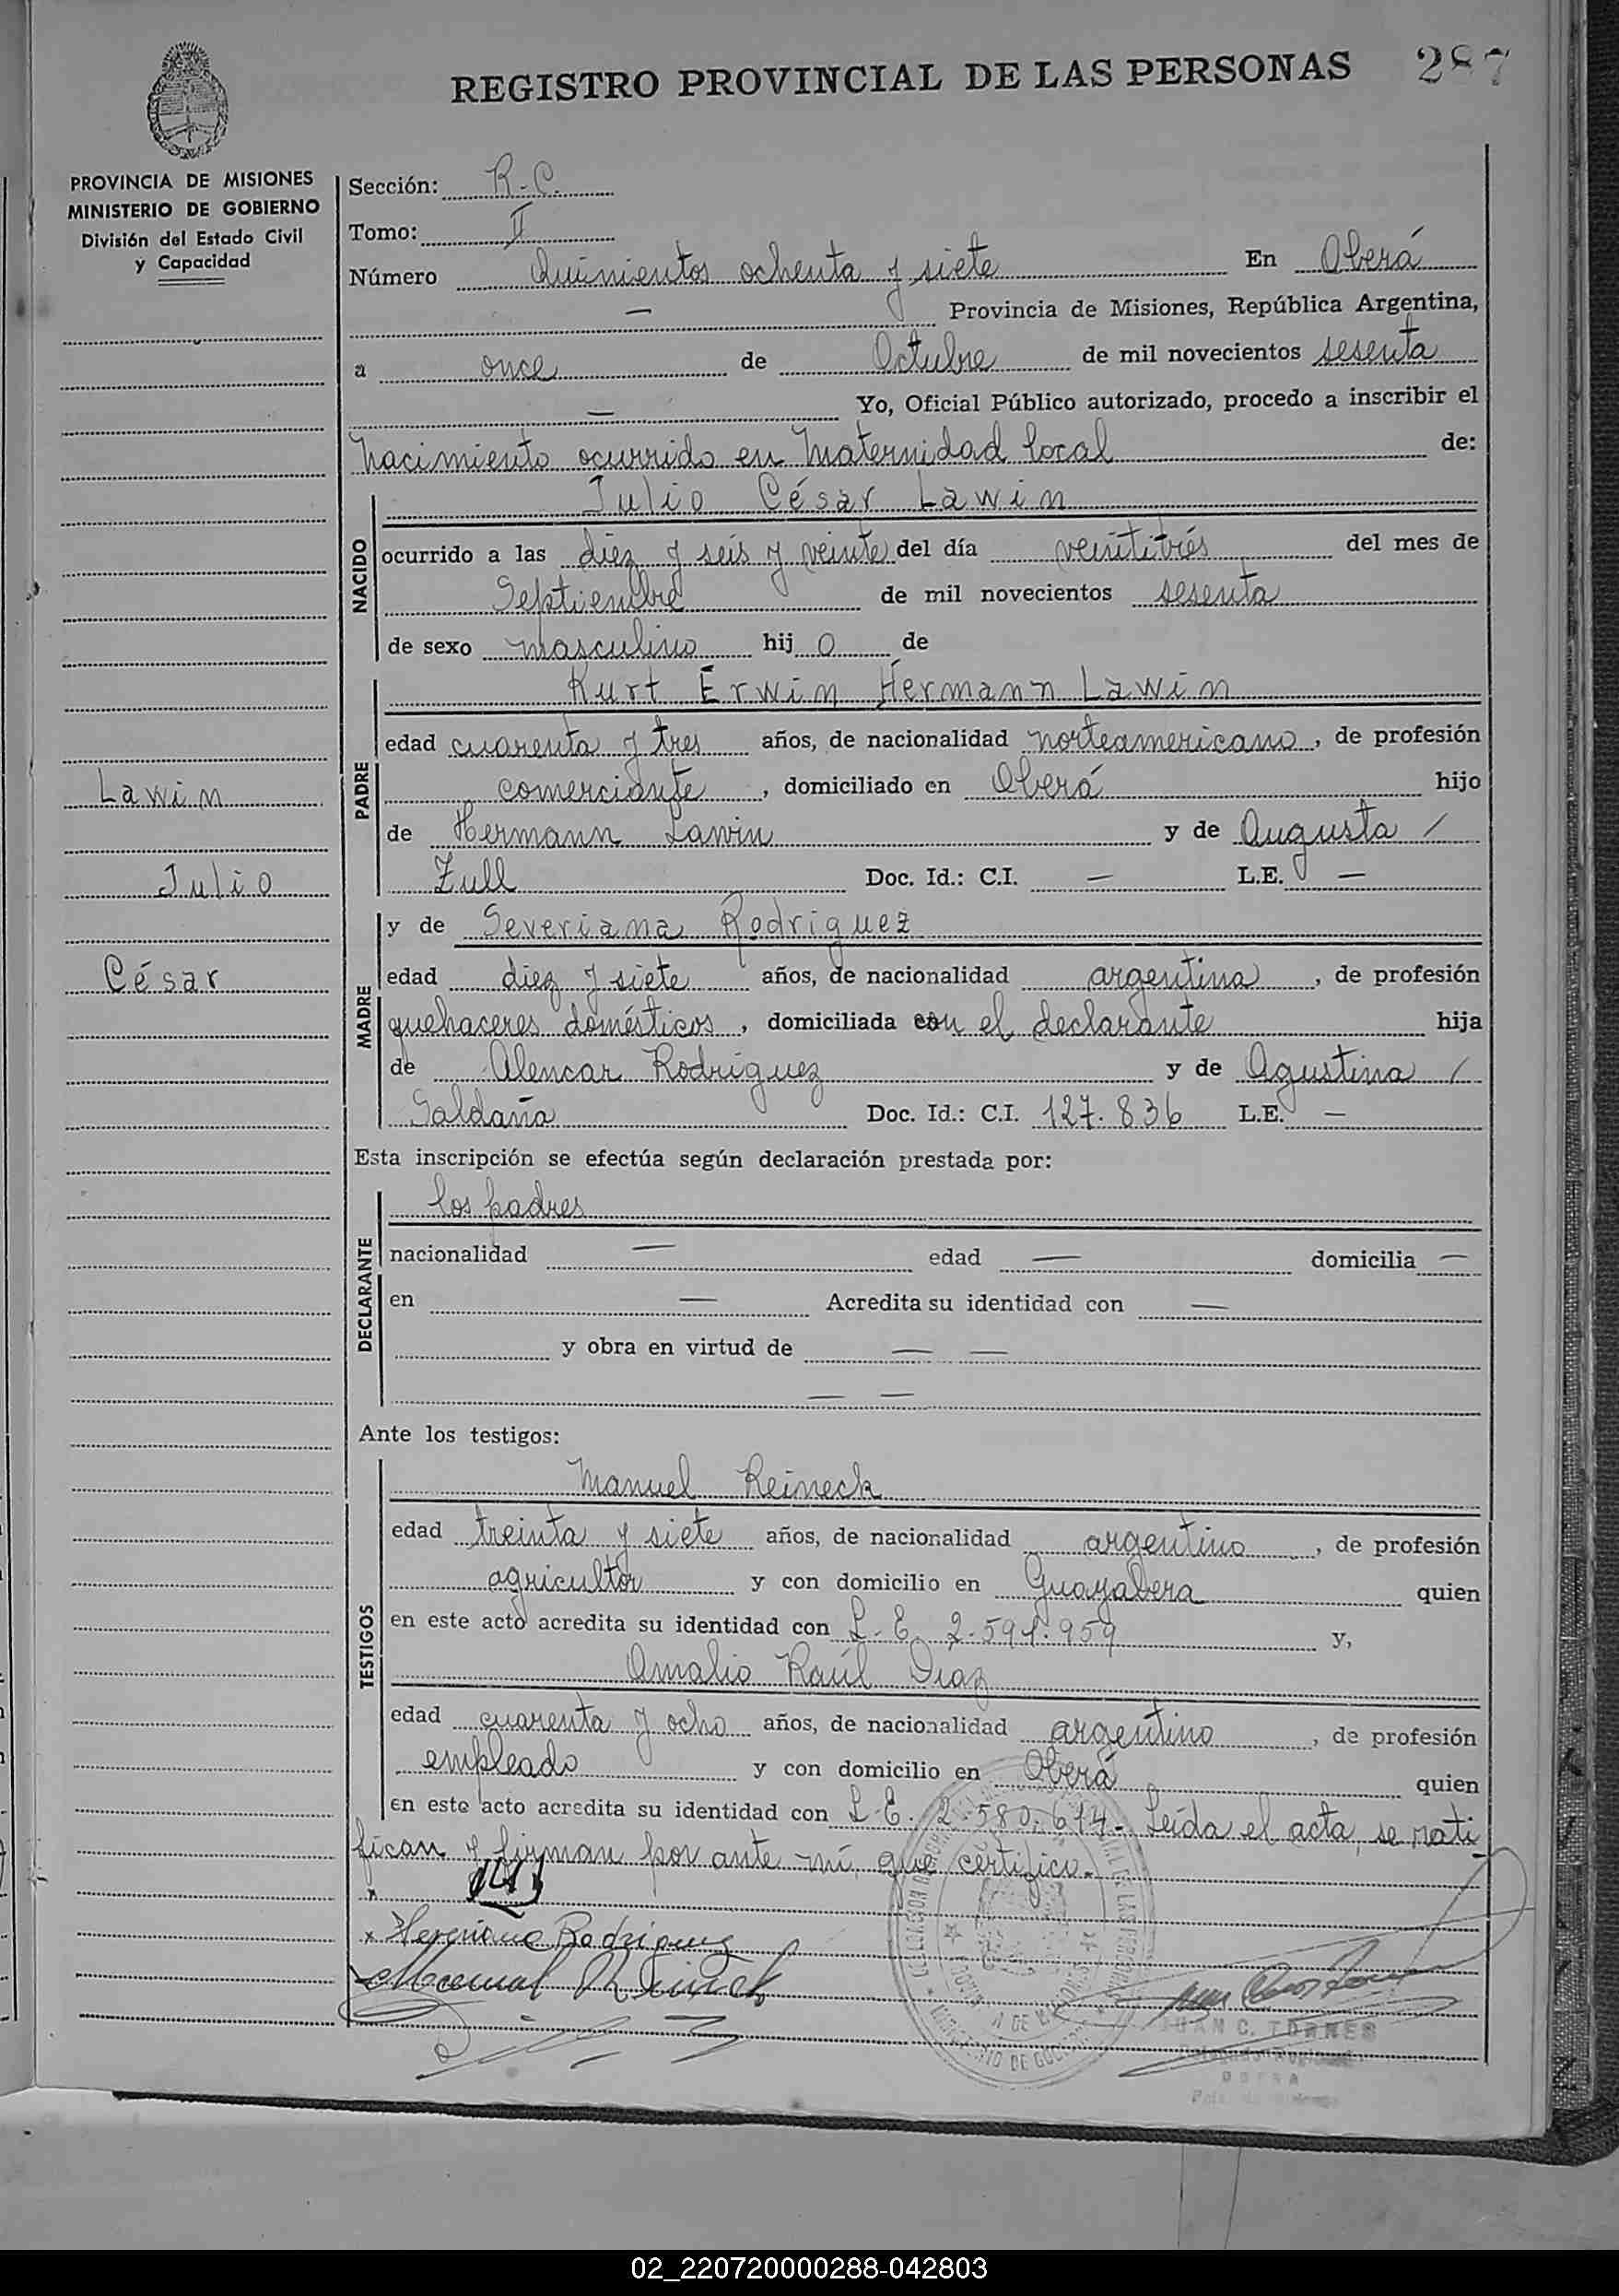 REGISTRO PROVINCIAL DE LAS PERSONAS 287
PROVINCIA DE MISIONES
MINISTERIO DE GOBIERNO
División del Estado Civil
y Capacidad
Lawin
Julio
César
Sección: R.C.
Tomo: II
Número Quinientos ochenta y siete En Oberá
— Provincia de Misiones, República Argentina,
a once de Octubre de mil novecientos sesenta
— Yo, Oficial Público autorizado, procedo a inscribir el
nacimiento ocurrido en Maternidad local de:
NACIDO
Julio César Lawin
ocurrido a las diez y seis y veinte del día veintitrés del mes de
Septiembre de mil novecientos sesenta
de sexo masculino hij o de
PADRE
Kurt Erwin Hermann Lawin
edad cuarenta y tres años, de nacionalidad norteamericano, de profesión
comerciante, domiciliado en Oberá hijo
de Hermann Lawin y de Augusta /
Zull Doc. Id.: C.I. — L.E. —
MADRE
y de Severiana Rodriguez
edad diez y siete años, de nacionalidad argentina, de profesión
quehaceres domésticos, domiciliada con el declarante hija
de Alencar Rodríguez y de Agustina /
Saldaña Doc. Id.: C.I. 127.836 L.E. —
Esta inscripción se efectúa según declaración prestada por:
DECLARANTE
los padres
nacionalidad — edad — domicilia —
en — Acredita su identidad con —
y obra en virtud de — —
— —
Ante los testigos:
TESTIGOS
Manuel Reineck
edad treinta y siete años, de nacionalidad argentino, de profesión
agricultor y con domicilio en Guayabera quien
en este acto acredita su identidad con L.E. 2.591.959 y,
Amalio Raúl Díaz
edad cuarenta y ocho años, de nacionalidad argentino, de profesión
empleado y con domicilio en Oberá quien
en este acto acredita su identidad con L.E. 2.580.614.- Leída el acta, se rati-
fican y firman por ante mí, que certifico.-
x Severiana Rodriguez
Manuel Reineck
JUAN C. TORRES
OBERA
02_220720000288-042803